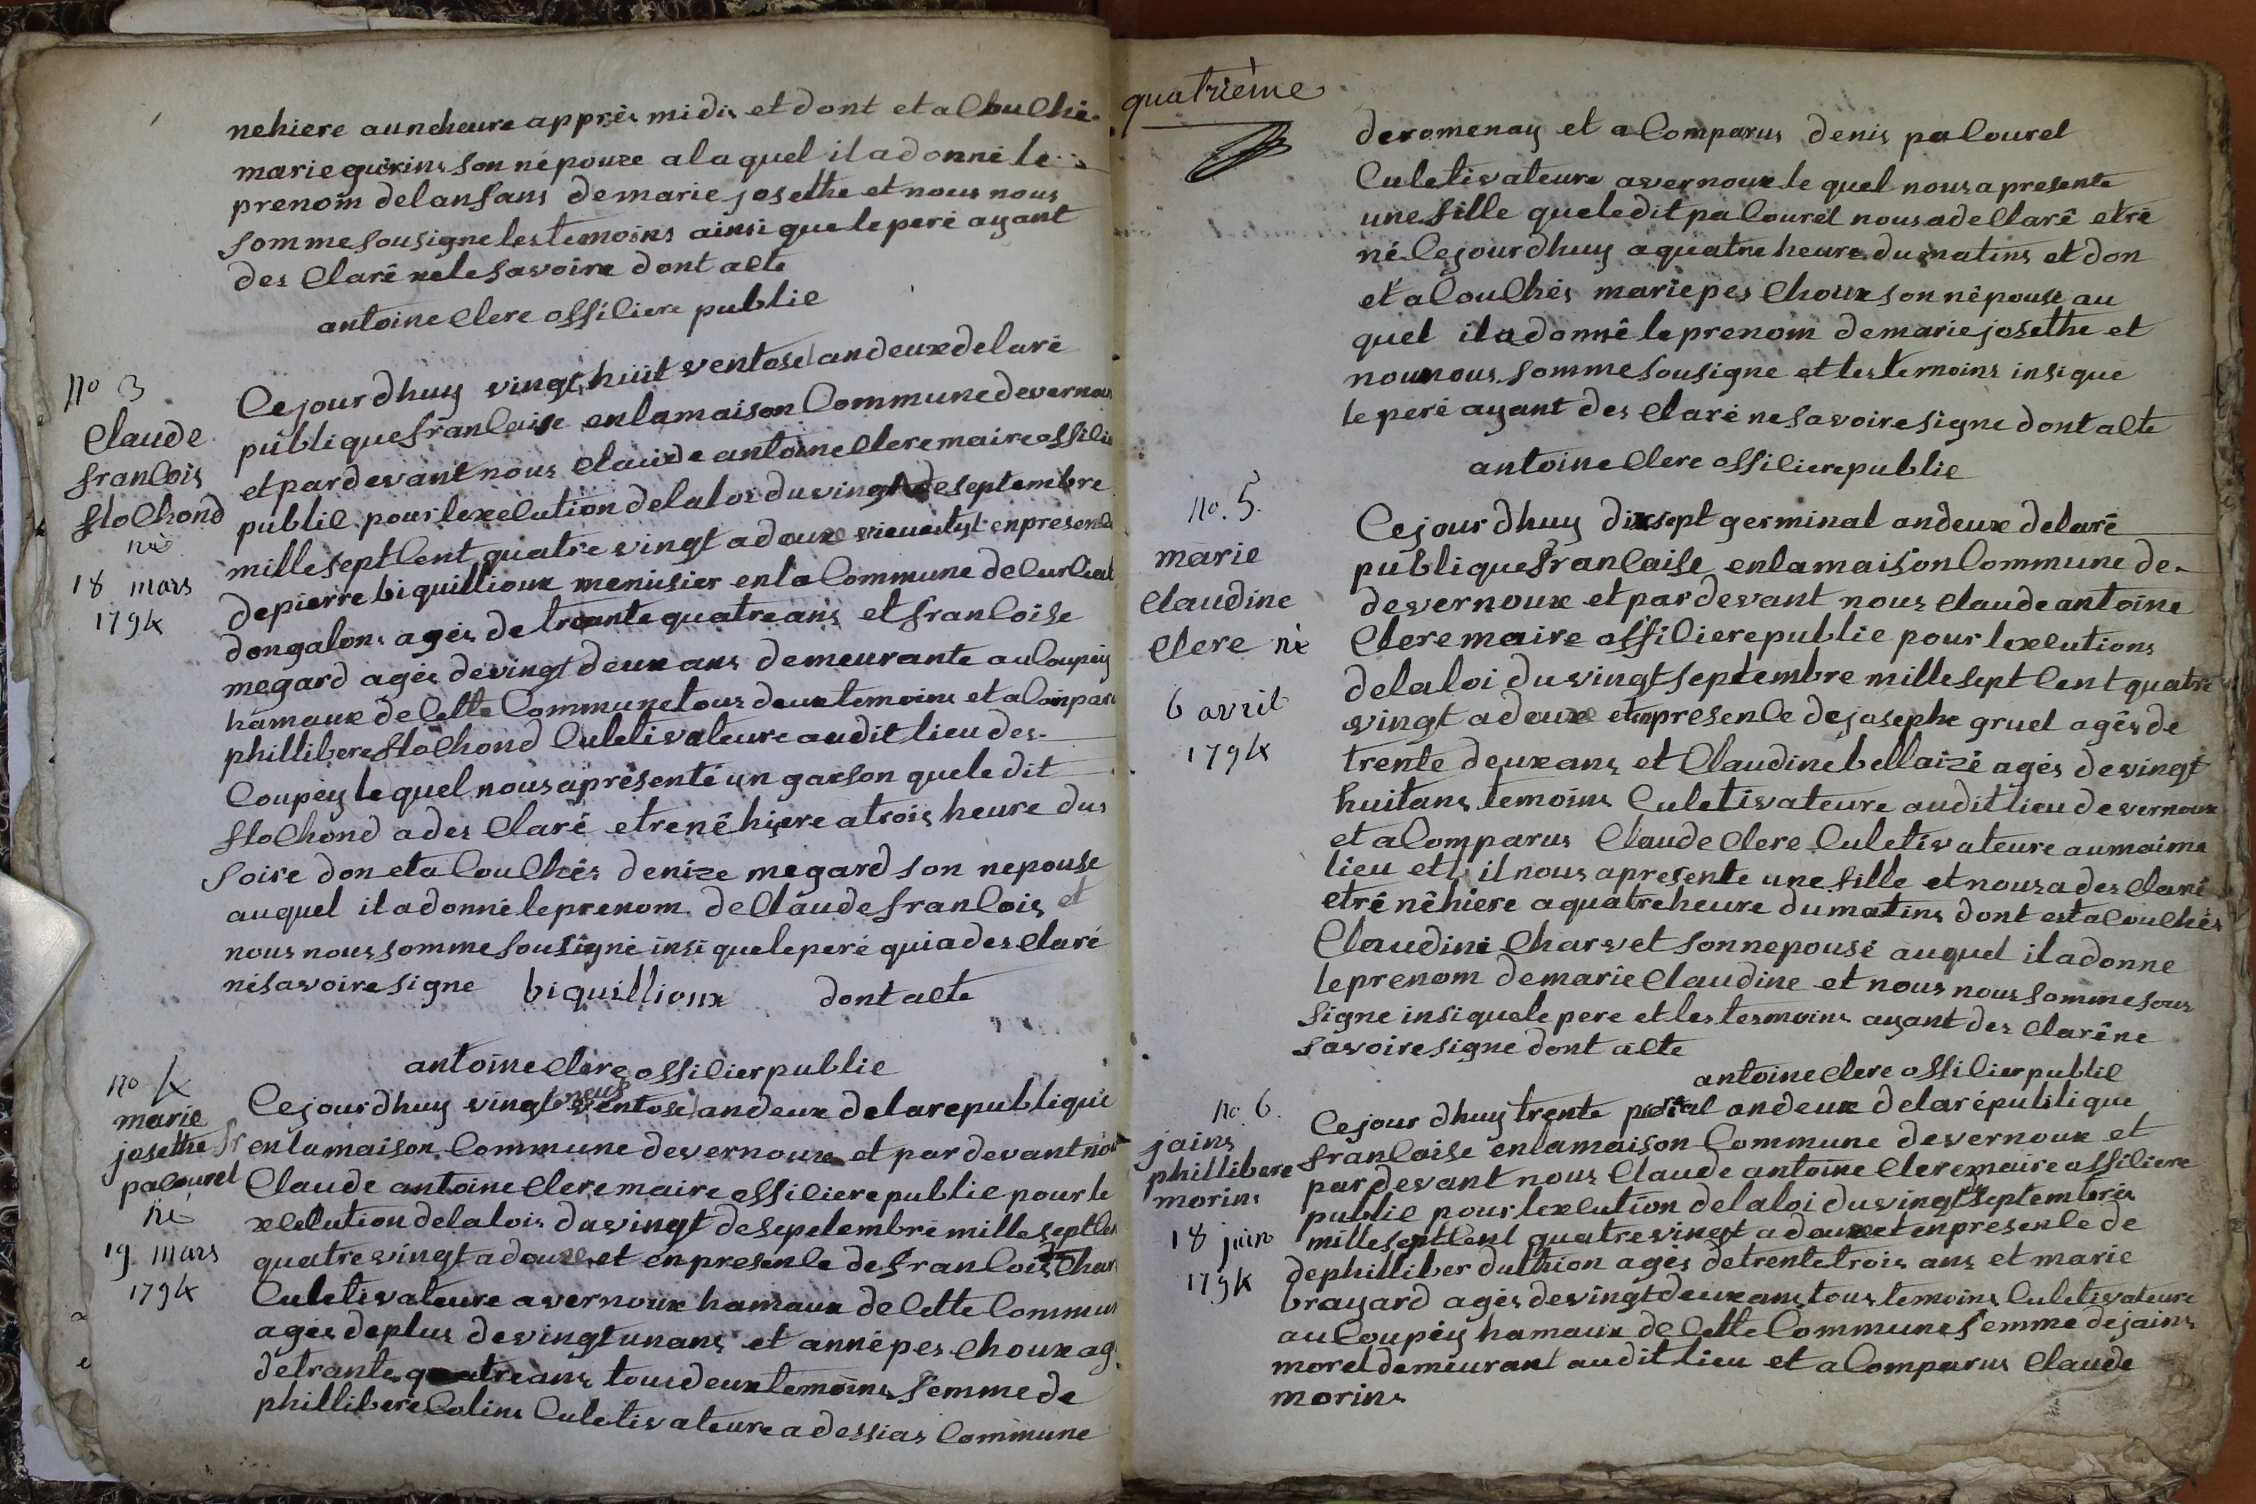 nehiere auneheure apprés midis et dont et a Cbu Ché
marie guérins son népouze a la quel il a donné le
prenom delansans de marie josethe et nous nous
somme sousigne les temoins ainsi que le peré ayant
des Claré ne le savoire dont acte
antoine Clere officiere public
no 3
Claude
francois
floChond
né
18 mars
1794
Cejourdhuy vingt huit ventose landeux de laré
publique francaise en la maison Commune devernou
et pardevant nous Claude antoine Clere maire officie
public pour lexecution de la loi du vingt de septembre
mille sept Cent quatre vingt a douze en presence
de pierre biquillioux menusier en la Commune de Curciat
dongalons agés de trante quatre ans et francoise
megard agés de vingt deux ans demeurante au Coupéy
hamaux de Cette Commune tous deux temoins et a Compar
phillibere floChond Culetivateure audit lieu des
Coupéy le quel nous a présenté un garson que le dit
floChond a des Claré etre né hiere a trois heure dus
soire don et a CouChés denize megard son nepouse
au quel il a donné le prenom de Claude francois et
nous nous somme sousigné insi que le peré qui a des Claré
né savoire signe biquillioux dont acte
antoine Clere officier public
no 4
marie
josethe
palourel
né
19 mars
1794
neuf
Cejourdhuy vingt ventose landeux de la republique
fr en la maison Commune devernoux et par devant nou
Claude antoine Clere maire officiere public pour le
xecution de la lois du vingt de sepetembre mille sept Cen
quatre vingt a douze et en presence de francois Char
Culetivateure a vernoux hamaux de Cette Commun
agés de plus de vingt un ans et anné pes Choux ag
de trante quatre ans tous deux temoins femme de
phillibere Colins Culetivateure a dessias Commune
quatrième
de romenay et a Comparus denis palourel
Culetivateure a vernoux le quel nous a presente
une fille que le dit palourel nous a de Claré etré
né Cejourdhuy a quatre heure du matins et don
et a CouChés marie pes Choux son népouse au
quel il a donné le prenom de marie josethe et
nou nous somme sousigne et les temoins insi que
le peré ayant des Claré ne savoire signe dont acte
antoine Clere officiere public
no. 5.
marie
Claudine
Clere né
6 avril
1794
Cejourdhuy dixsept germinal andeux de laré
publique francaise en la maison Commune de
de vernoux et par devant nous Claude antoine
Clere maire officiere public pour lexecutions
de la loi du vingt septembre mille sept Cent quatre
vingt a deuze et en presence de josephe gruel agés de
trente deux ans et Claudine bellaizé agés de vingt
huit ans temoins Culetivateure audit lieu de vernoux
et a Comparus Claude Clere Culetivateure au maime
lieu et il nous a presente une fille et nous a des Claré
etré né hiere a quatre heure du matins dont est a CouChés
Claudine Charvet son nepousé au quel il a donne
le prenom de marie Claudine et nous nous somme sous
signe insi que le pere et les tesmoins ayant des Claré ne
savoire signe dont acte
antoine Clere officier public
no. 6.
jains
phillibere
morins
18 juin
1794
Cejourdhuy trente prerial andeux de la république
francaise en la maison Commune de vernoux et
par devant nous Claude antoine Clere maire officiere
public pour lexecution de la loi du vingt de septembrés
mille sept Cent quatre vingt a douze et en presence de
de philliber duthion agés de trente trois ans et marie
brayard agés de vingt deux ans tous temoins Culetivateure
au Coupéy hamaux de Cette Commune femme de jains
morel demeurant audit lieu et a Comparus Claude
morins